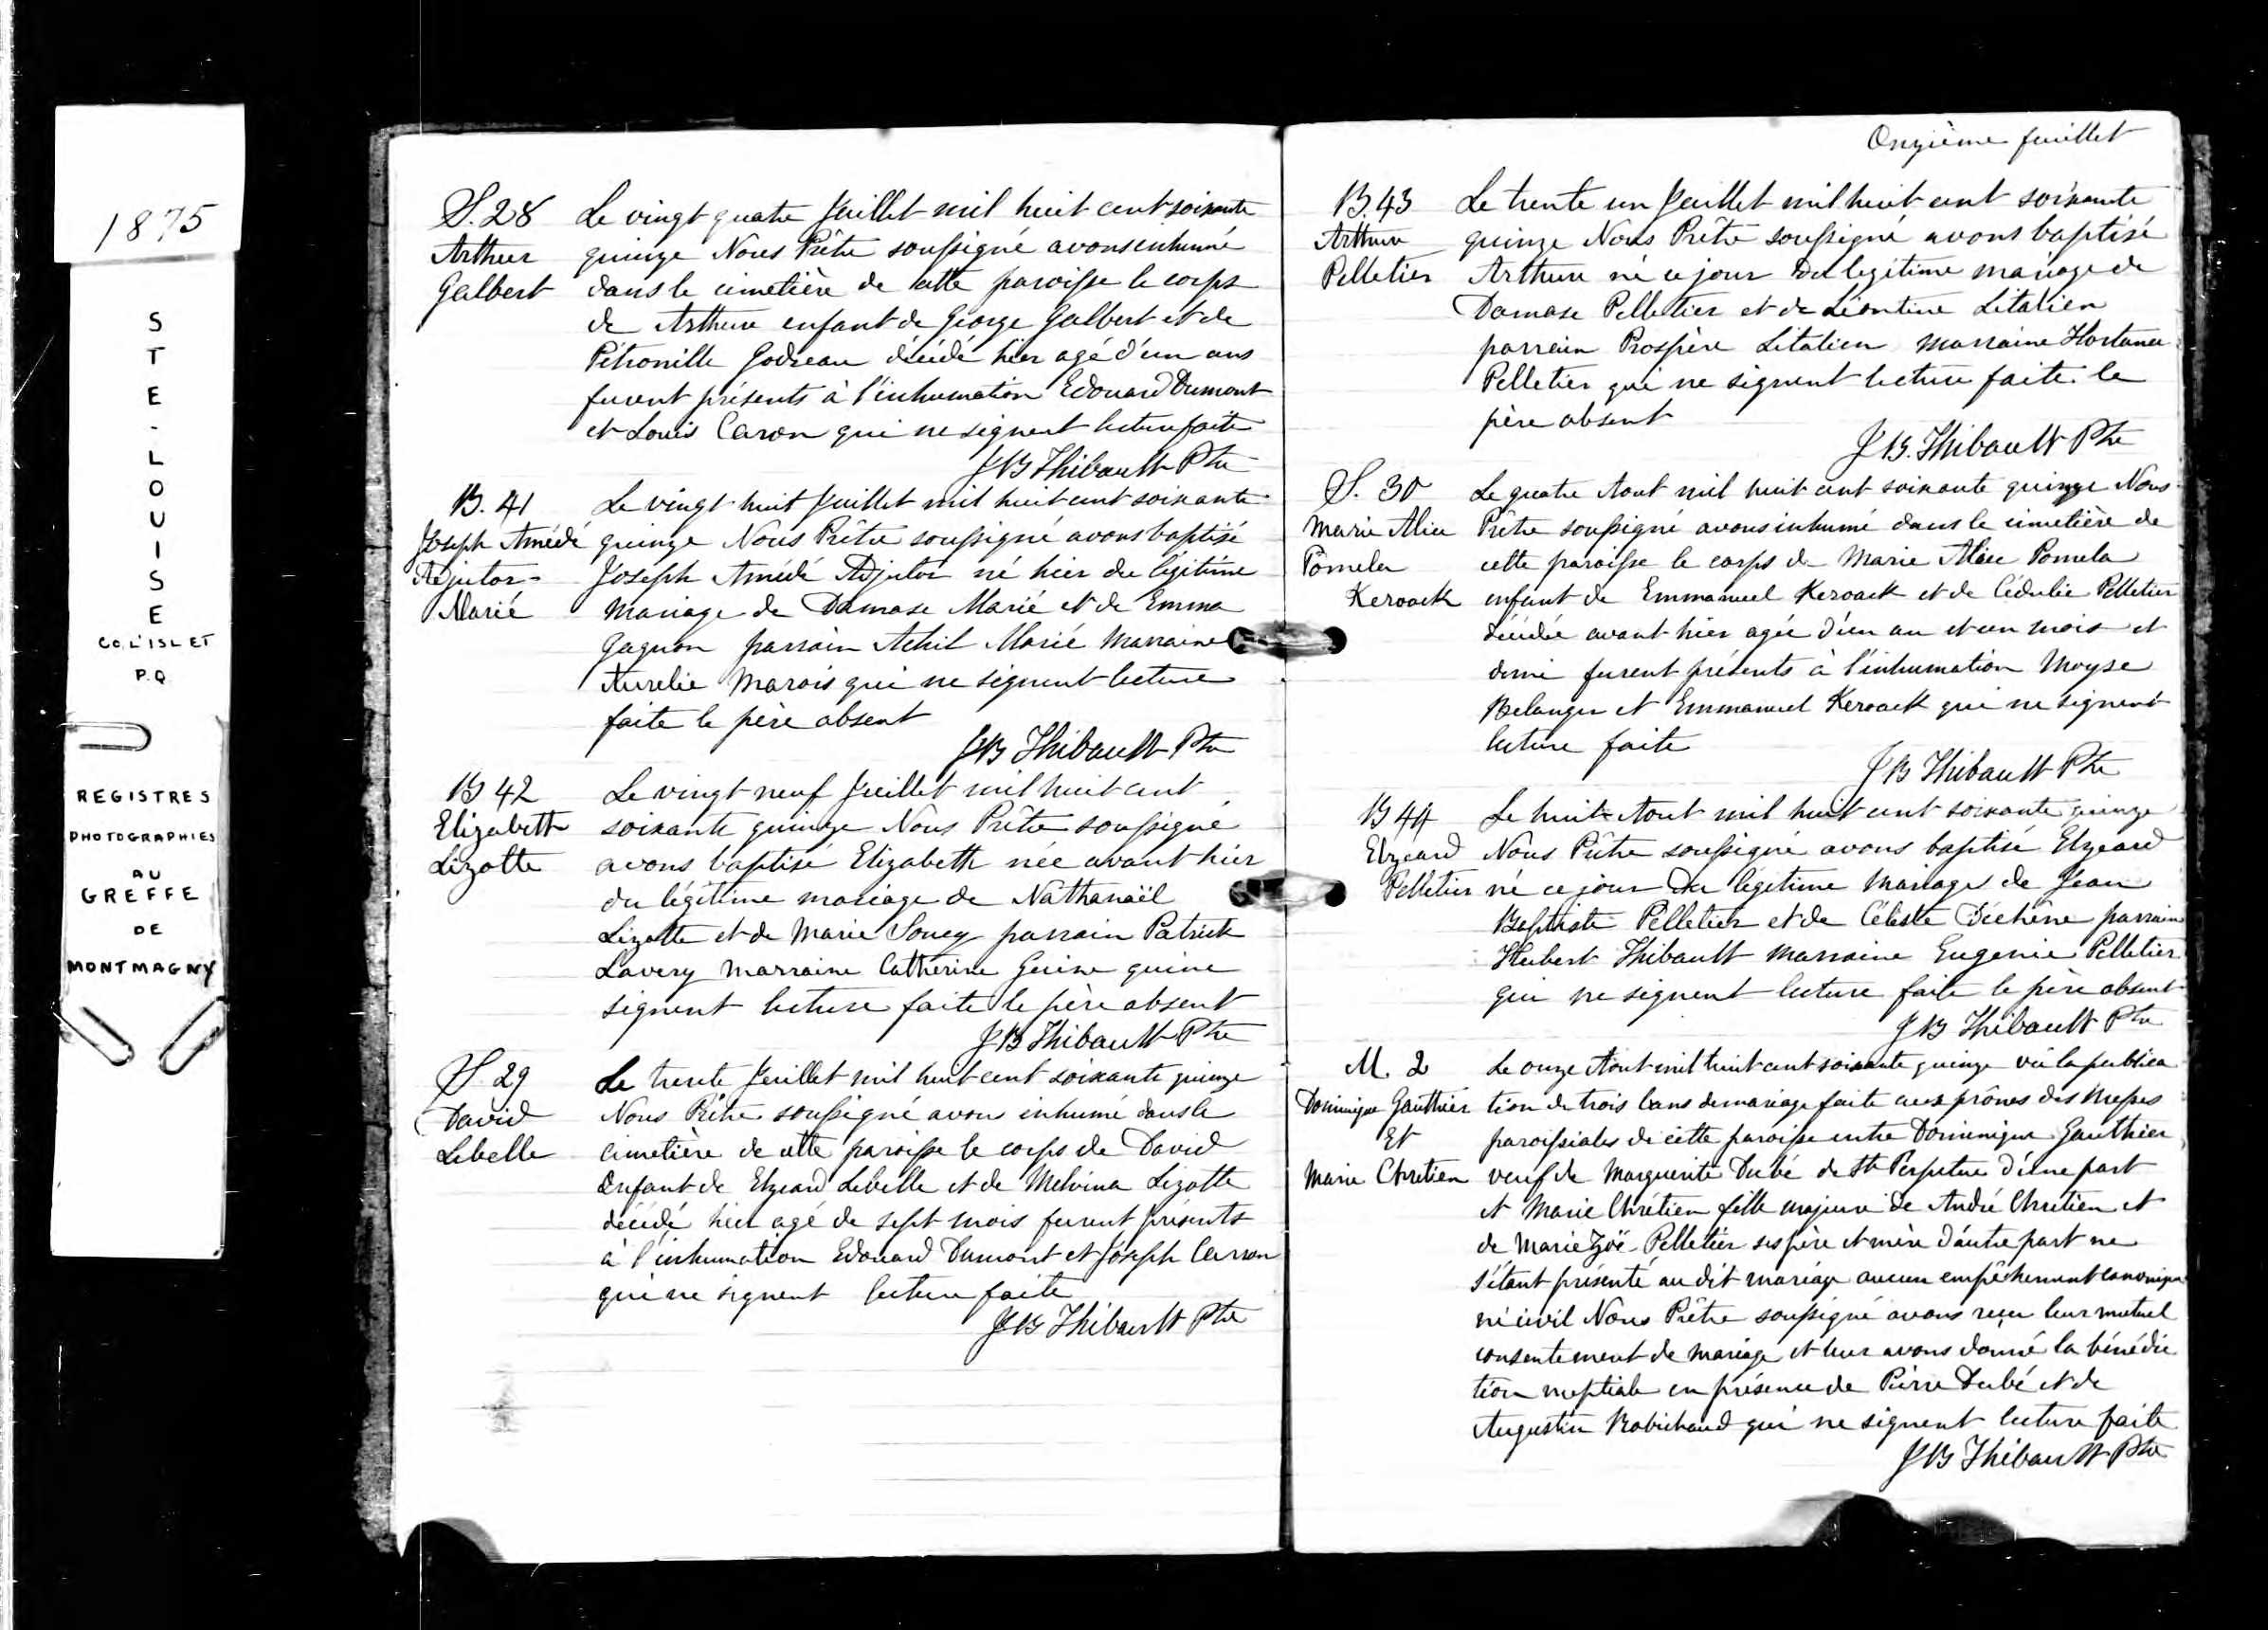 1875
STE-LOUISE
CO. L'ISLET
P.Q.
REGISTRES
PHOTOGRAPHIES
AU
GREFFE
DE
MONTMAGNY
S. 28
Arthur
Galbert
Le vingt quatre Juillet mil huit cent soixante
quinze Nous Prêtre soussigné avons inhumé
dans le cimetière de cette paroisse le corps
de Arthure enfant de George Galbert et de
Pétronille Godreau décédé hier agé d'un ans
furent présents à l'inhumation Edouard Dumont
et Louis Caron qui ne signent lecture faite
JB Thibault Ptre
B. 41
Joseph Amédé
Adjutor
Marié
Le vingt huit Juillet mil huit cent soixante
quinze Nous Prêtre soussigné avons baptisé
Joseph Amédé Adjutor né hier du légitime
mariage de Damase Marié et de Emma
Gagnon parrain Achil Marié marraine
Aurelie Marois qui ne signent lecture
faite le père absent
JB Thibault Ptre
B 42
Elizabeth
Lizotte
Le vingt neuf Juillet mil huit cent
soixante quinze Nous Prêtre soussigné
avons baptisé Elizabeth née avant hier
du légitime mariage de Nathanaël
Lizotte et de Marie Soucy parrain Patrick
Lavery marraine Catherine Guine qui ne
signent lecture faite le père absent
JB Thibault Ptre
S. 29
David
Lebelle
Le trente Juillet mil huit cent soixante quinze
Nous Prêtre soussigné avons inhumé dans le
cimetière de cette paroisse le corps de David
Enfant de Elzeard Lebelle et de Melvina Lizotte
décédé hier agé de sept mois furent présents
à l'inhumation Edouard Dumont et Joseph Carron
qui ne signent lecture faite
JB Thibault Ptre
Onzième feuillet
B. 43
Arthure
Pelletier
Le trente un Juillet mil huit cent soixante
quinze Nous Prêtre soussigné avons baptisé
Arthure né ce jour du legitime mariage de
Damase Pelletier et de Léontine Litalien
parrain Prospère Litalien marraine Hortance
Pelletier qui ne signent lecture faite le
père absent
J B. Thibault Ptre
S. 30
Marie Alice
Pomela
Keroack
Le quatre Aout mil huit cent soixante quinze Nous
Prêtre soussigné avons inhumé dans le cimetière de
cette paroisse le corps de Marie Alice Pomela
enfant de Emmanuel Keroack et de Cédulie Pelletier
décédée avant hier agée d'un an et un mois et
demi furent présents à l'inhumation Moyse
Belanger et Emmanuel Keroack qui ne signent
lecture faite
JB Thibault Ptre
B 44
Elzeard
Pelletier
Le huit Aout mil huit cent soixante quinze
Nous Prêtre soussigné avons baptisé Elzeard
né ce jour du légitime mariage de Jean
Baptiste Pelletier et de Céleste Dechêne parrain
Hubert Thibault marraine Eugenie Pelletier
qui ne signent lecture faite le père absent
JB Thibault Ptre
M. 2
Dominique Gauthier
Et
Marie Chretien
Le onze Aout mil huit cent soixante quinze vu la publica
tion de trois bans de mariage faite aux prônes des Messes
paroissiales de cette paroisse entre Dominique Gauthier
veuf de Marguerite Dubé de Ste Perpetue d'une part
et Marie Chrétien fille majeure de André Chretien et
de Marie Zoë Pelletier ses père et mère d'autre part ne
s'étant présenté au dit mariage aucun empêchement canonique
ni civil Nous Prêtre soussigné avons reçu leur mutuel
consentement de mariage et leur avons donné la bénédic
tion nuptiale en présence de Pierre Dubé et de
Augustin Robichaud qui ne signent lecture faite
JB Thibault Ptre